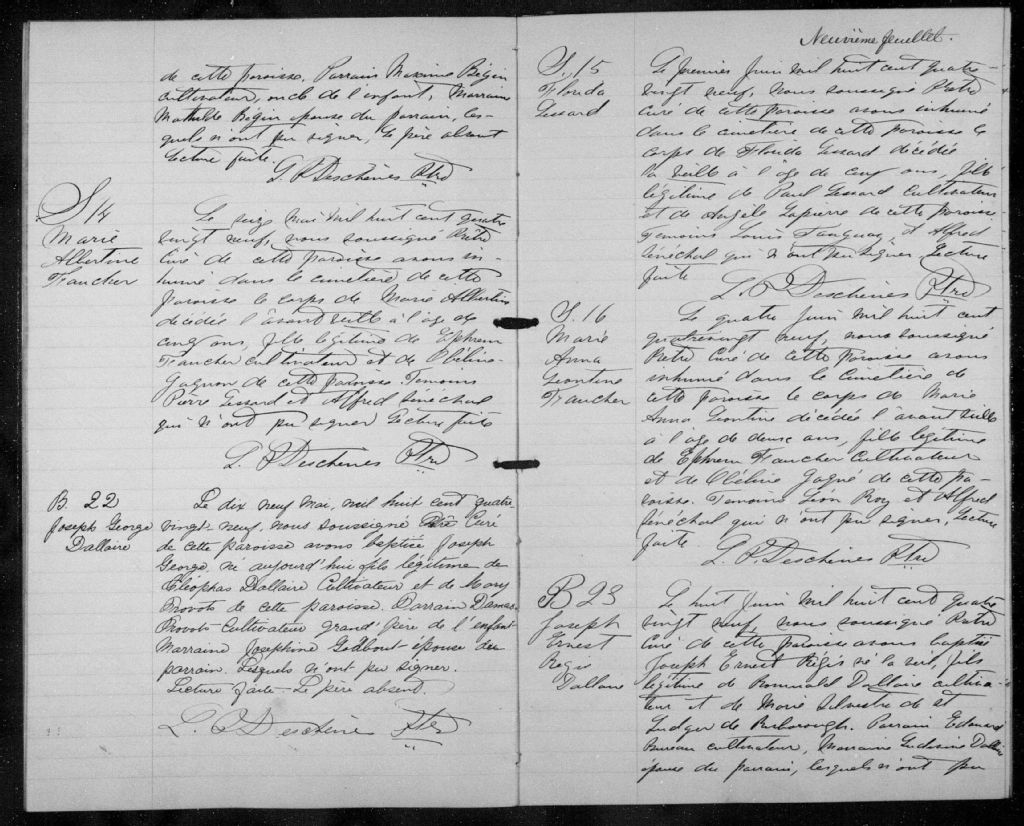 de cette paroisse, Parrain Maxime Bégin
cultivateur, oncle de l'enfant, Marraine
Mathilde Bégin épouse du parrain, les-
quels n'ont pu signer, le père absent
Lecture faite.
L. P. Deschènes Ptre
S 14
Marie
Albertine
Faucher
Le seize mai mil huit cent quatre
vingt neuf, nous soussigné Prêtre
Curé de cette paroisse avons in-
humé dans le cimetière de cette
paroisse le corps de Marie Albertine
décédée l'avant veille à l'âge de
cinq ans, fille légitime de Ephrem
Faucher cultivateur et de Oléline
Gagnon de cette paroisse Temoins
Pierre Lessard et Alfred Sénéchal
qui n'ont pu signer Lecture faite
L. P. Deschènes Ptre
B. 22
Joseph George
Dallaire
Le dix neuf Mai, mil huit cent quatre
vingt-neuf, nous soussigné Ptre Curé
de cette paroisse avons baptisé Joseph
George, né aujourd'hui fils légitime de
Cléophas Dallaire Cultivateur et de Mary
Provots de cette paroisse. Parrain Damas
Provots cultivateur grand'père de l'enfant
Marraine Josephine Godbout épouse du
parrain. Lesquels n'ont pu signer.
Lecture faite - Le père absent.
L. P. Deschènes Ptre
Neuvième feuillet.
S. 15
Florida
Lessard
Le premier Juin mil huit cent quatre-
vingt neuf, nous soussigné Prêtre
curé de cette paroisse avons inhumé
dans le cimetière de cette paroisse le
corps de Florida Lessard décédée
la veille à l'âge de cinq ans, fille
légitime de Paul Lessard Cultivateur
et de Angèle Lapierre de cette paroisse
Temoins Louis Tanguay, et Alfred
Sénéchal qui n'ont pu signer Lecture
faite
L. P. Deschènes Ptre
S. 16
Marie
Anna
Leontine
Faucher
Le quatre Juin mil huit cent
quatrevingt neuf, nous soussigné
Prêtre Curé de cette paroisse avons
inhumé dans le cimetière de
cette paroisse le corps de Marie
Anna Leontine décédée l'avant veille
à l'âge de deux ans, fille légitime
de Ephrem Faucher cultivateur
et de Oléline Gagné de cette pa-
roisse. Temoins Léon Roy et Alfred
Sénéchal qui n'ont pu signer, Lecture
faite
L. P. Deschènes Ptre
B 23
Joseph
Ernest
Regis
Dallaire
Le huit Juin mil huit cent quatre
vingt neuf, nous soussigné Prêtre
Curé de cette paroisse avons baptisé
Joseph Ernest Régis né la veille, fils
légitime de Romuald Dallaire cultiva-
teur et de Marie Silvestre de St
Ludger de Risborough. Parrain Edouard
Bureau cultivateur, Marraine Dallaire
épouse du parrain, lesquels n'ont pu